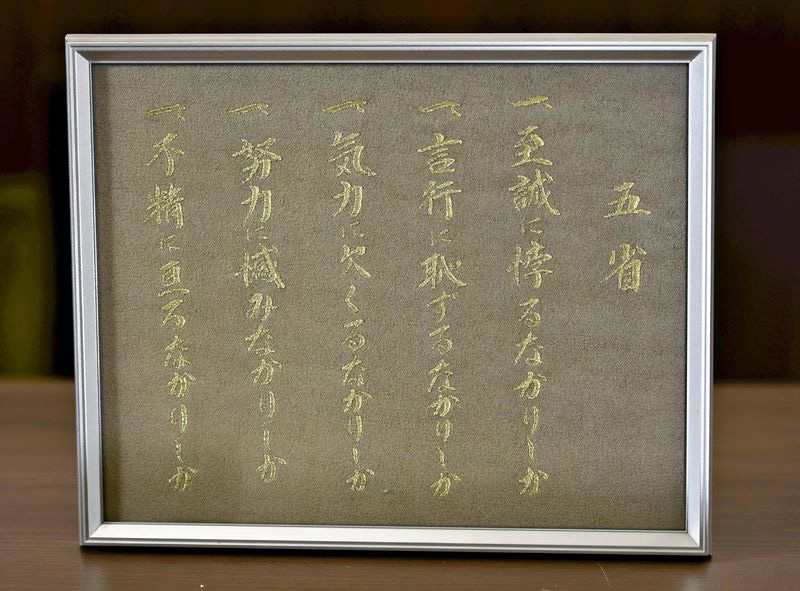 五省
一 至誠に悖るなかりしか
一 言行に恥ずるなかりしか
一 気力に欠くるなかりしか
一 努力に憾みなかりしか
一 不精に亘るなかりしか